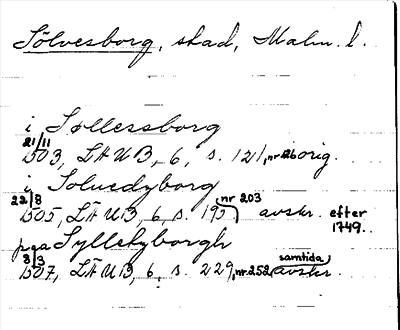 Sölvesborg, stad, Malm. l.
i Søllessborg
21/11 1503, LÄUB, 6, s. 121, nr 126 orig.
i Soluedyborg
22/8 1505, LÄUB, 6, s. 195, nr 203 avskr. efter 1749.
paa Syllehyborgh
8/3 1507, LÄUB, 6, s. 229, nr 252 (samtida) avskr.